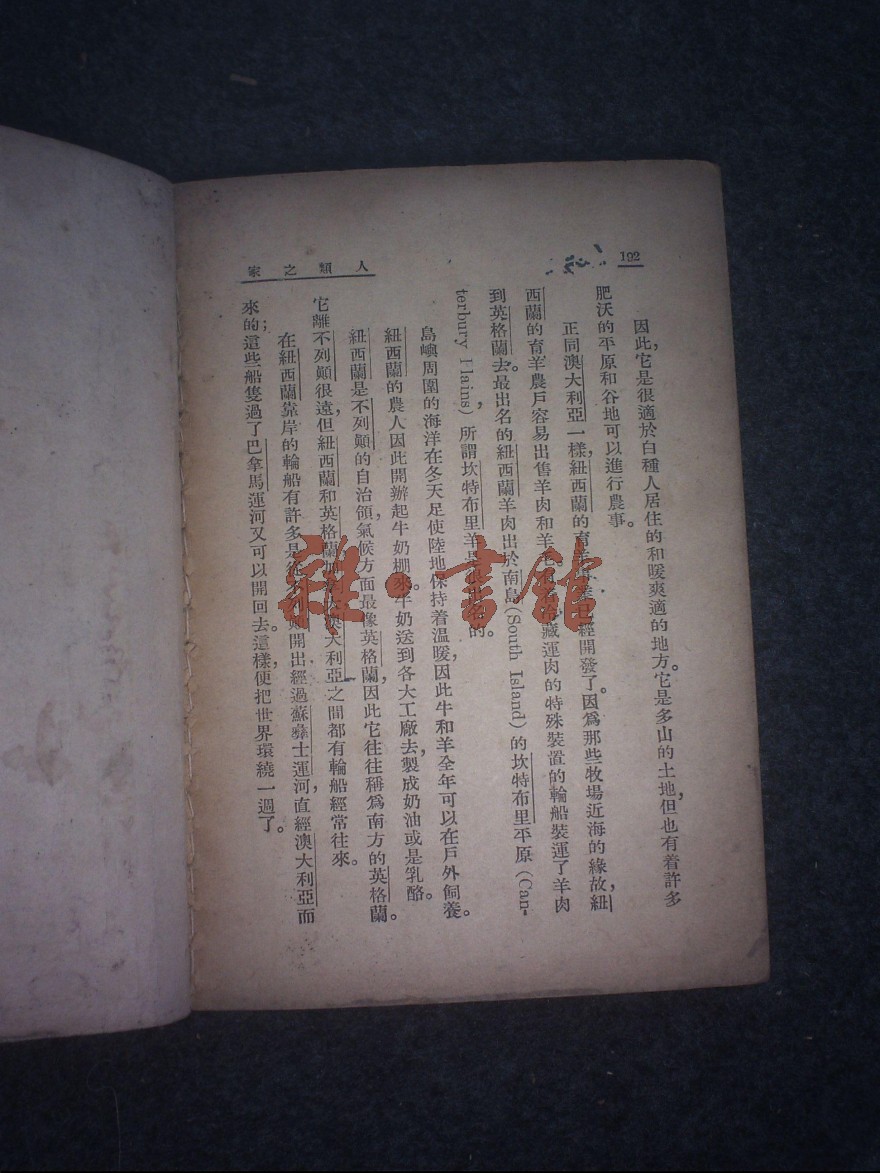 192
人類之家
因此，它是很適於白種人居住的和暖爽適的地方。它是多山的土地，但也有着許多
肥沃的平原和谷地可以進行農事。
正同澳大利亞一樣，紐西蘭的育羊事業已經開發了。因爲那些牧場近海的緣故，紐
西蘭的育羊農戶容易出售羊肉和羊毛。有冷藏運肉的特殊裝置的輪船裝運了羊肉
到英格蘭去。最出名的紐西蘭羊肉出於南島(South Island)的坎特布里平原(Can-
terbury Plains)，所謂坎特布里羊是的。
島嶼周圍的海洋在冬天足使陸地保持着溫暖，因此牛和羊全年可以在戶外飼養。
紐西蘭的農人因此開辦起牛奶棚來。牛奶送到各大工廠去，製成奶油或是乳酪。
紐西蘭是不列顚的自治領，氣候方面最像英格蘭，因此它往往稱爲南方的英格蘭。
它離不列顚很遠，但紐西蘭和英格蘭澳大利亞之間都有輪船經常往來。
在紐西蘭靠岸的輪船有許多是從不列顚開出經過蘇彝士運河，直經澳大利亞而
來的；這些船隻過了巴拿馬運河又可以開回去。這樣，便把世界環繞一週了。
雜·書館